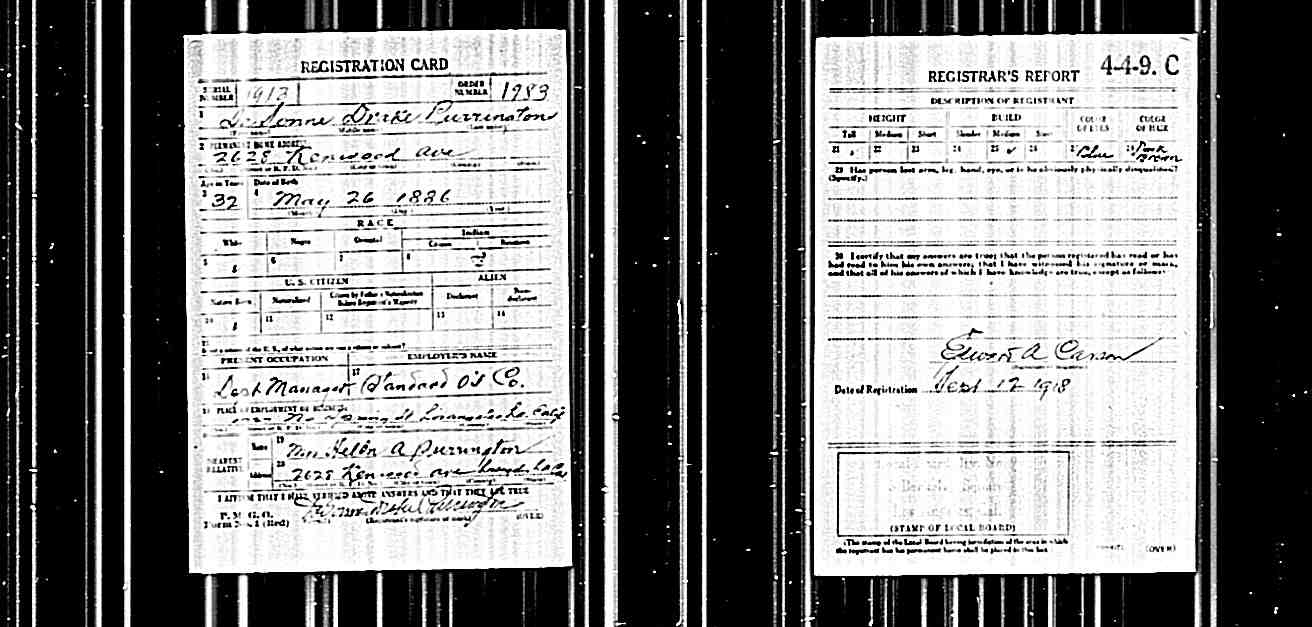 REGISTRATION CARD
SERIAL NUMBER 1913 ORDER NUMBER 1983
1 Drake Purrington
(First name) (Middle name) (Last name)
2 PERMANENT HOME ADDRESS:
2628 Kenwood Ave
Age in Years Date of Birth
3 32 4 May 26 1886
(Month) (Day) (Year)
RACE
White Negro Oriental Indian
Citizen Noncitizen
5 6 7 8
U. S. CITIZEN ALIEN
Native Born Naturalized Citizen by Father's Naturalization Before Registrant's Majority Declarant Non-declarant
10 11 12 13 14
15
If not a citizen of the U. S., of what nation are you a citizen or subject?
PRESENT OCCUPATION EMPLOYER'S NAME
16 Manager 17 Standard Oil Co.
18 PLACE OF EMPLOYMENT OR BUSINESS:
No Spring St Los Angeles Calif
NEAREST RELATIVE Name 19 Mrs Helen A Purrington
Address 20 2628 Kenwood ave
I AFFIRM THAT I HAVE VERIFIED ABOVE ANSWERS AND THAT THEY ARE TRUE
P. M. G. O.
Form No. 1 (Red) (Registrant's signature or mark) (OVER)
REGISTRAR'S REPORT 4-4-9. C
DESCRIPTION OF REGISTRANT
HEIGHT BUILD COLOR OF EYES COLOR OF HAIR
Tall Medium Short Slender Medium Stout
21 22 23 24 25 ✓ 26 27 Blue 28 Dark Brown
29 Has person lost arm, leg, hand, eye, or is he obviously physically disqualified?
(Specify.)
30 I certify that my answers are true; that the person registered has read or has
had read to him his own answers; that I have witnessed his signature or mark,
and that all of his answers of which I have knowledge are true, except as follows:
A Carson
Date of Registration Sept 12 1918
(STAMP OF LOCAL BOARD)
(The stamp of the Local Board having jurisdiction of the area in which
the registrant has his permanent home shall be placed in this box.)
(OVER)